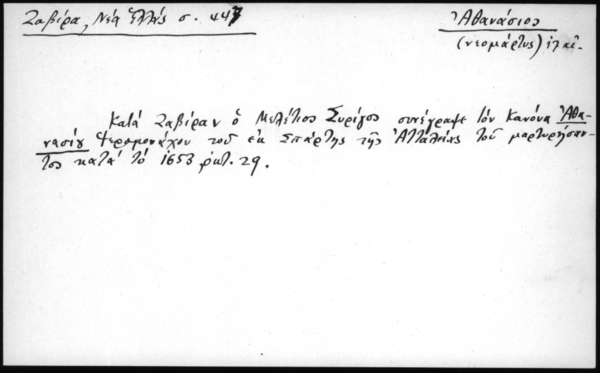 Ζαβίρα, Νέα Ἑλλάς σ. 447
Ἀθανάσιος
(νεομάρτυς)
Κατά Ζαβίραν ὁ Μελέτιος Συρίγος συνέγραψε τόν Κανόνα Ἀθα-
νασίου Ἱερομονάχου τοῦ ἐκ Σπάρτης τῆς Ἀτταλείας τοῦ μαρτυρήσαν-
τος κατά τό 1653 ὀκτ. 29.